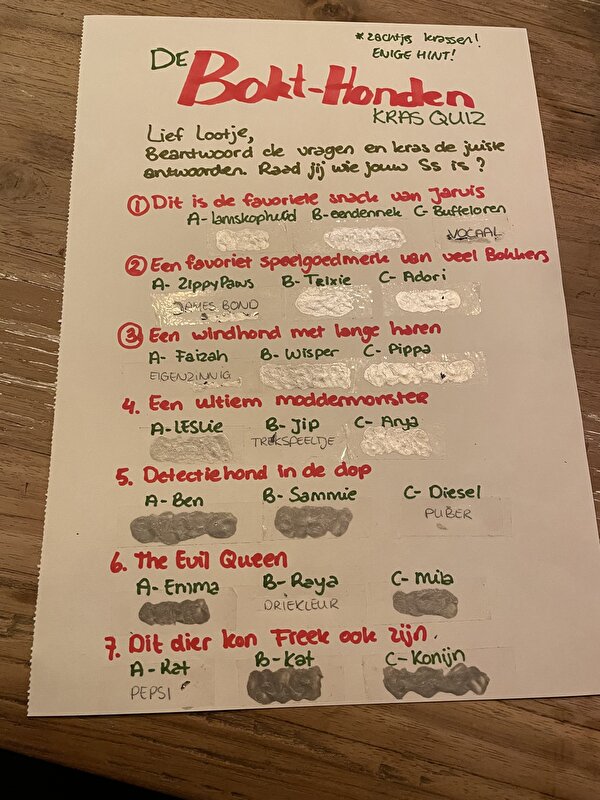 *zachtjes krassen!
ENIGE HINT!
DE Bokt-Honden
KRAS QUIZ
Lief Lootje,
Beantwoord de vragen en kras de juiste
antwoorden. Raad jij wie jouw Ss is?
① Dit is de favoriete snack van Jarvis
A- lamskophuid B- eendennek C- Buffeloren
VOCAAL
② Een favoriet speelgoedmerk van veel Bokkers
A- ZippyPaws B- Trixie C- Adori
JAMES BOND
③ Een windhond met lange haren
A- Faizah B- Wisper C- Pippa
EIGENZINNIG
4. Een ultiem moddermonster
A- LESLie B- Jip C- Anya
TREKSPEELTJE
5. Detectiehond in de dop
A- Ben B- Sammie C- Diesel
PUBER
6. The Evil Queen
A- Emma B- Raya C- Mila
DRIEKLEUR
7. Dit dier kon Freek ook zijn.
A- Rat B- Kat C- Konijn
PEPSI